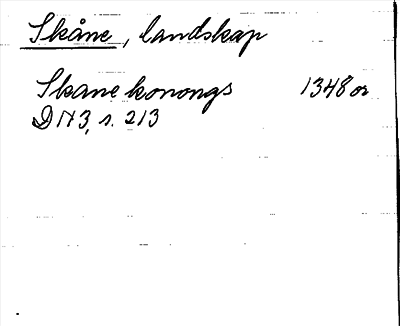 Skåne, landskap
Skane konongs 1348 or
DN 3, s. 213